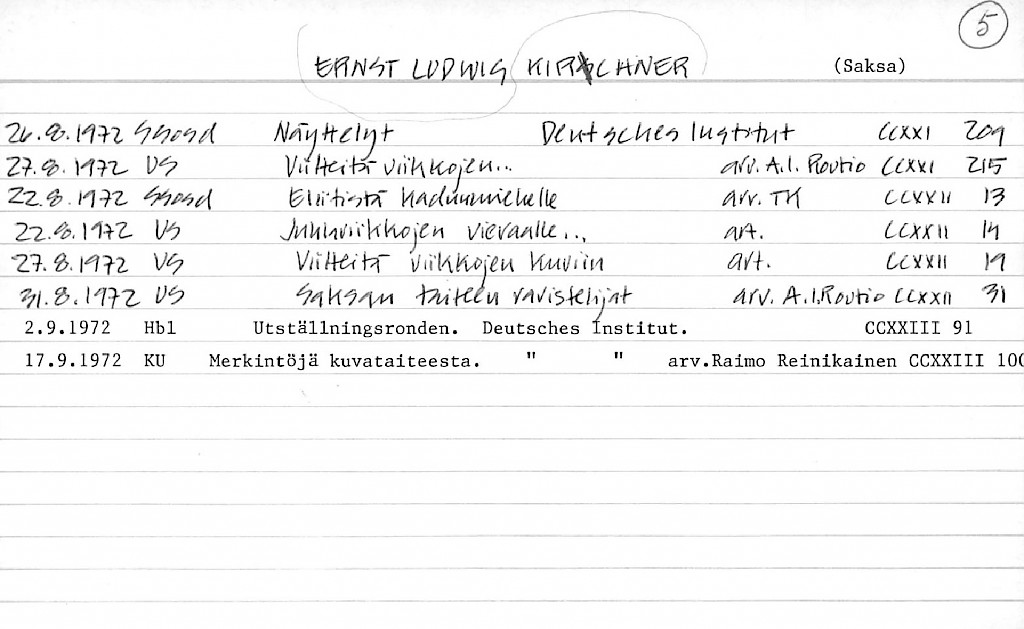 5
ERNST LUDWIG KIRCHNER (Saksa)
26.8.1972 SSosd Näyttelyt Deutsches Institut CCXXI 209
27.8.1972 US Viitteitä viikkojen.. arv. A.I. Routio CCXXI 215
22.8.1972 SSosd Eliitistä kadunmiehelle arv. TK CCXXII 13
22.8.1972 US Juhlaviikkojen vieraalle.., art. CCXXII 14
27.8.1972 US Viitteitä viikkojen kuviin art. CCXXII 19
31.8.1972 US Saksan taiteen ravistelijat arv. A.I.Routio CCXXII 31
2.9.1972 Hbl Utställningsronden. Deutsches Institut. CCXXIII 91
17.9.1972 KU Merkintöjä kuvataiteesta. " " arv.Raimo Reinikainen CCXXIII 100